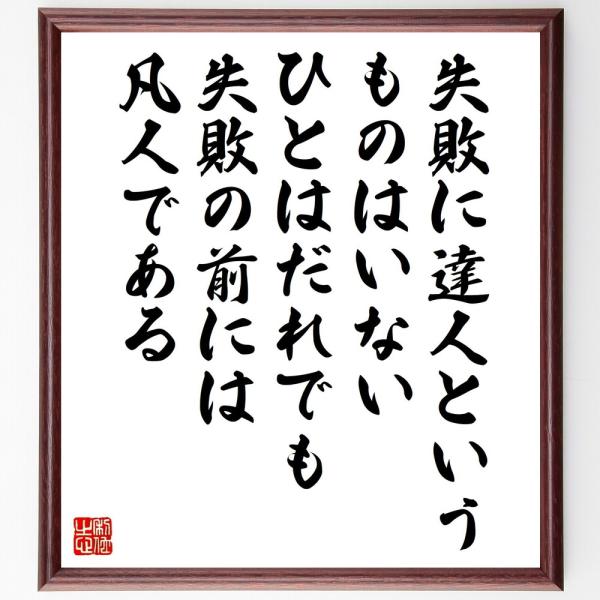 失敗に達人という
ものはいない
ひとはだれでも
失敗の前には
凡人である